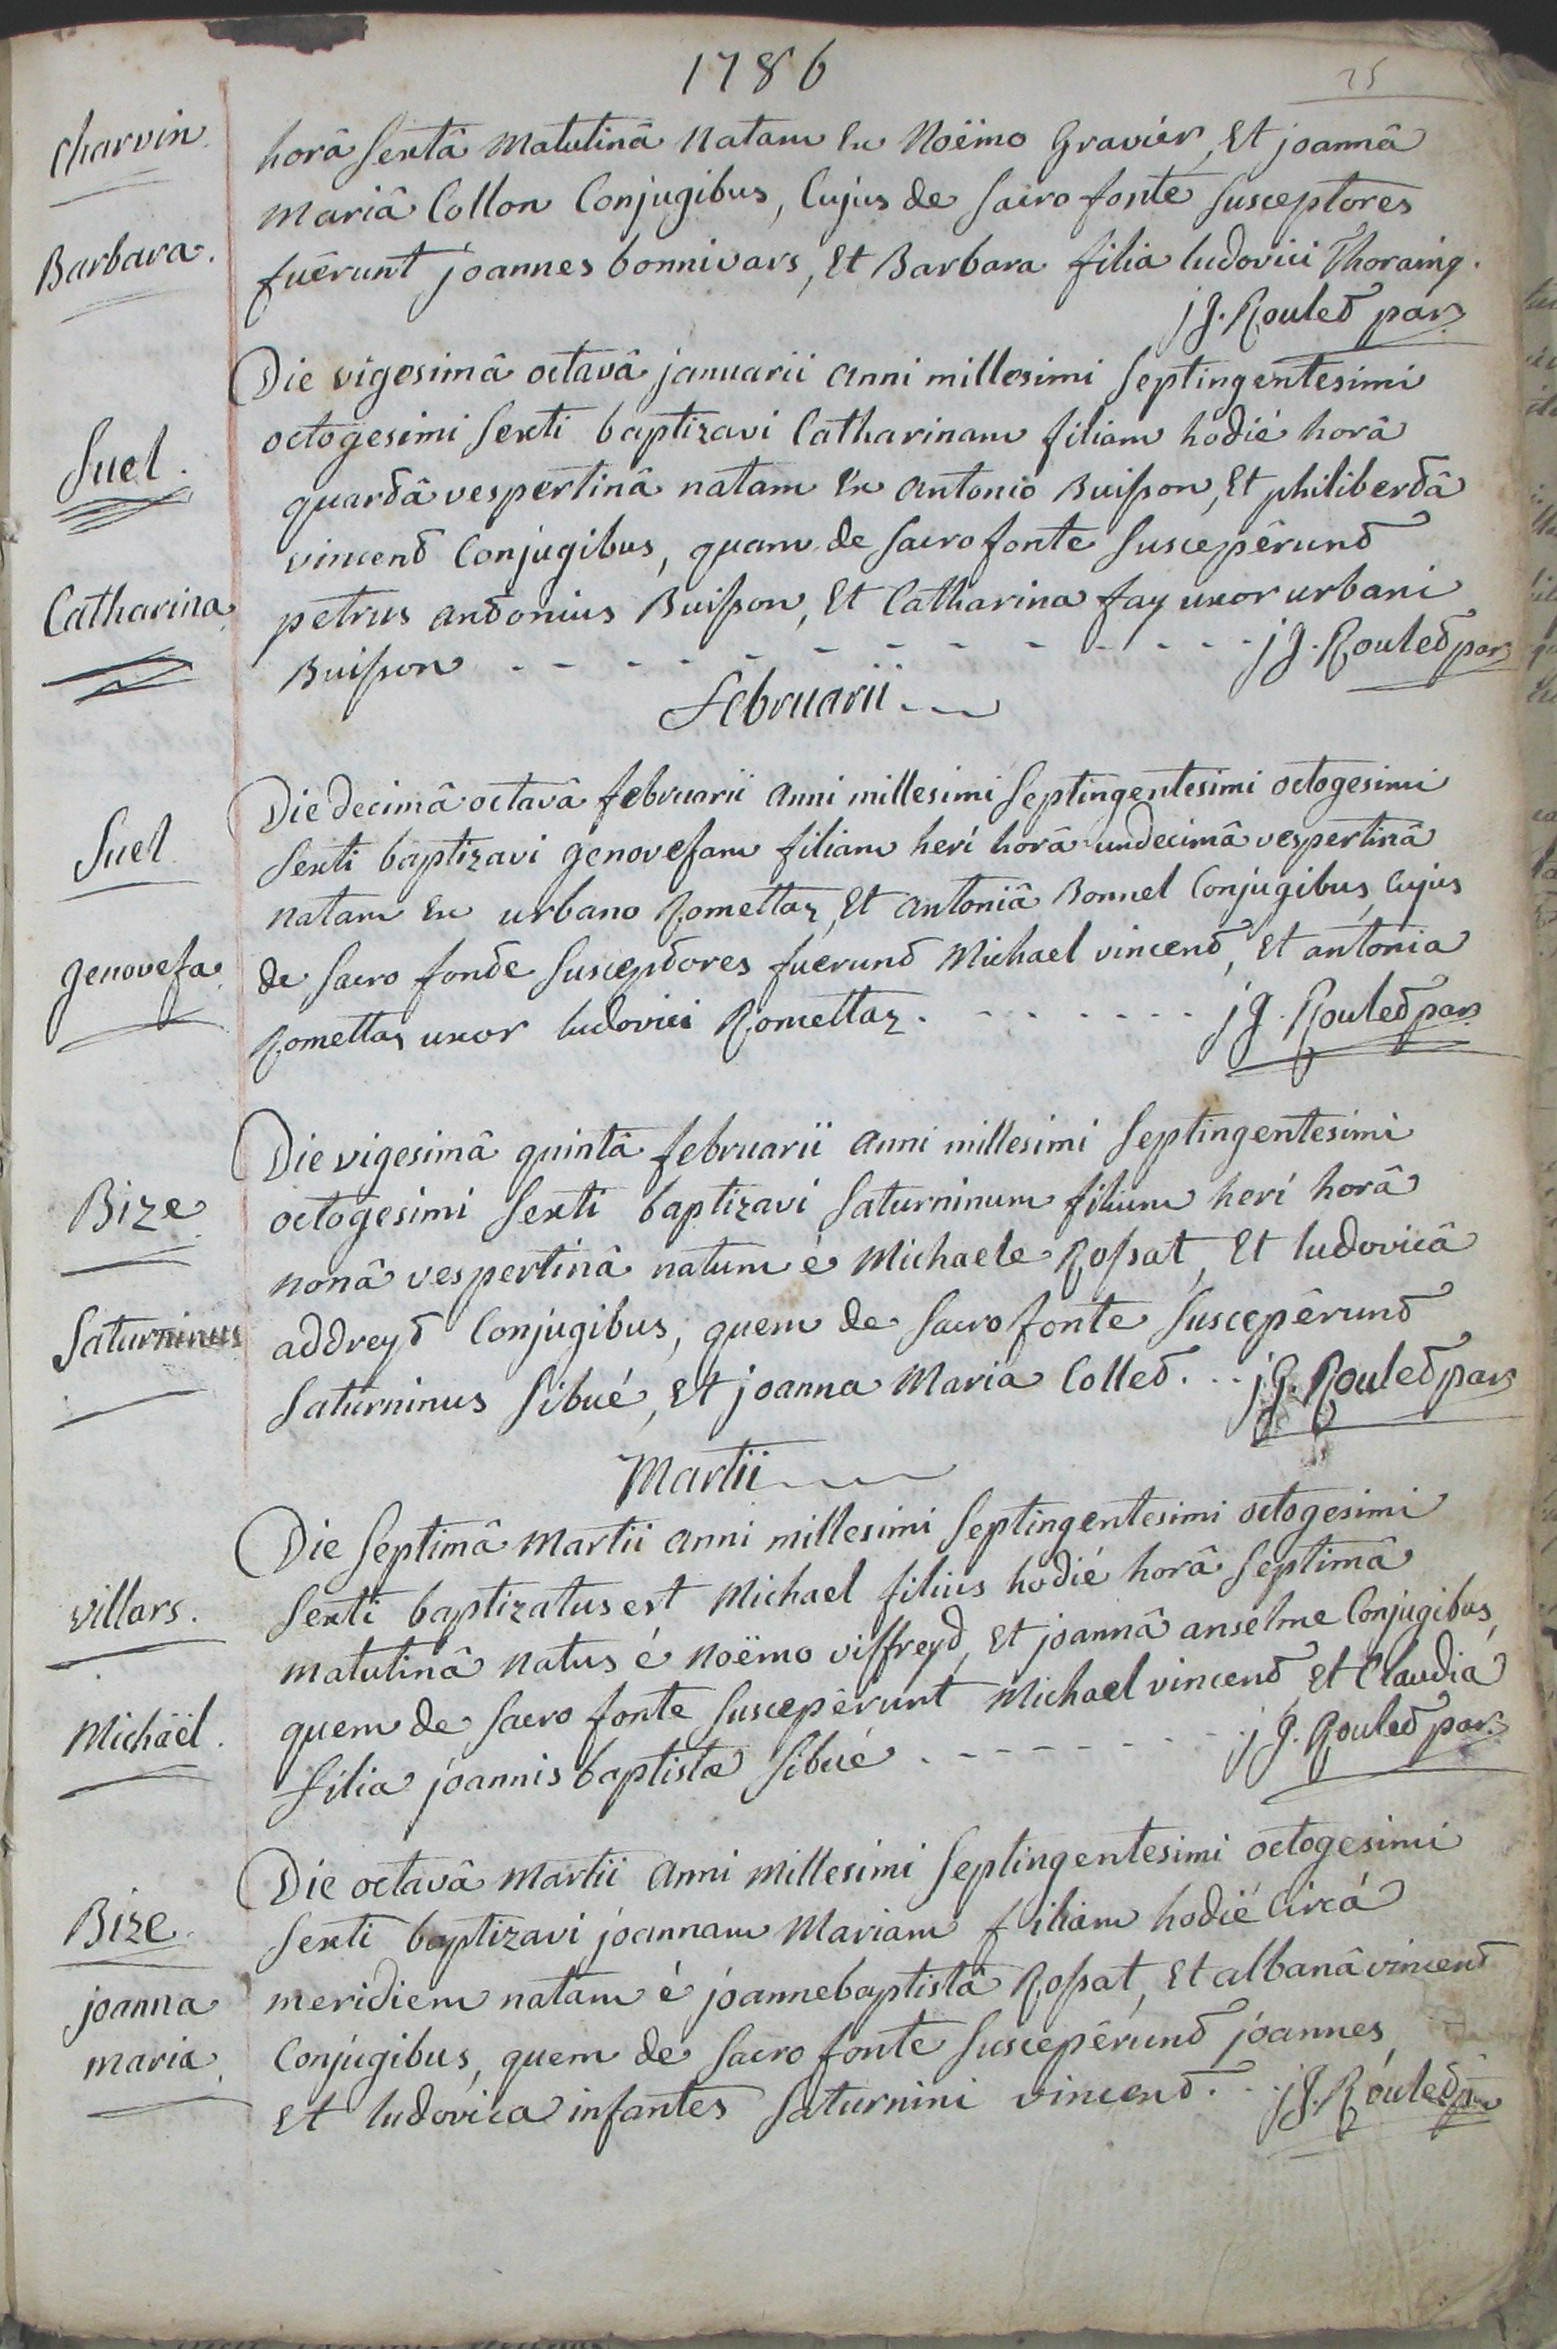 1786
25
Charvin.
Barbara.
horâ Sextâ Matutinâ Natam Ex Noëmo Gravier, Et joannâ
Mariâ Collon Conjugibus, Cujus de Sacro fonte Susceptores
fuêrunt joannes bonnivars, Et Barbara filia ludovici Thoraing.
j g. Roulet par.
Suel.
Catharina.
Die vigesimâ octavâ januarii anni millesimi Septingentesimi
octogesimi Sexti baptizavi Catharinam filiam hodié horâ
quartâ vespertinâ natam Ex antonio Buisson, Et philibertâ
vincent Conjugibus, quam de Sacro fonte Suscepêrunt
petrus antonius Buisson, Et Catharina fay uxor urbani
Buisson - - - - - - - - - - - - - j g. Roulet par.
Februarii
Suel
genovefa.
Die decimâ octavâ februarii anni millesimi Septingentesimi octogesimi
Sexti baptizavi genovefam filiam heri horâ undecimâ vespertinâ
natam Ex urbano Romettaz, Et antoniâ Bonnel Conjugibus, Cujus
de Sacro fonte Susceptores fuerunt Michael vincent, Et antonia
Romettaz uxor ludovici Romettaz. - - - - - - - j g. Roulet par.
Bize.
Saturninus
Die vigesimâ quintâ februarii anni millesimi Septingentesimi
octogesimi Sexti baptizavi Saturninum filium heri horâ
nonâ vespertinâ natum é Michaele Rossat, Et ludovicâ
addreyt Conjugibus, quem de Sacro fonte Suscepêrunt
Saturninus Sibué, Et joanna Maria Collet. . . j g. Roulet par.
Martii
villars.
Michäel.
Die Septimâ Martii anni millesimi Septingentesimi octogesimi
Sexti baptizatus est Michael filius hodié horâ Septimâ
matutinâ natus é Noëmo viffreyd, Et joannâ anselme Conjugibus,
quem de Sacro fonte Suscepêrunt Michael vincent Et Claudia
filia joannis baptistæ Sibué . - - - - - - - - j g. Roulet par.
Bize.
joanna
maria.
Die octavâ Martii anni Millesimi Septingentesimi octogesimi
Sexti baptizavi joannam Mariam filiam hodié Circá
meridiem natam é joannebaptistâ Rossat, Et albanâ vincent
Conjugibus, quem de Sacro fonte Suscepêrunt joannes,
Et ludovica infantes Saturnini vincent. . . j g. Roulet par.